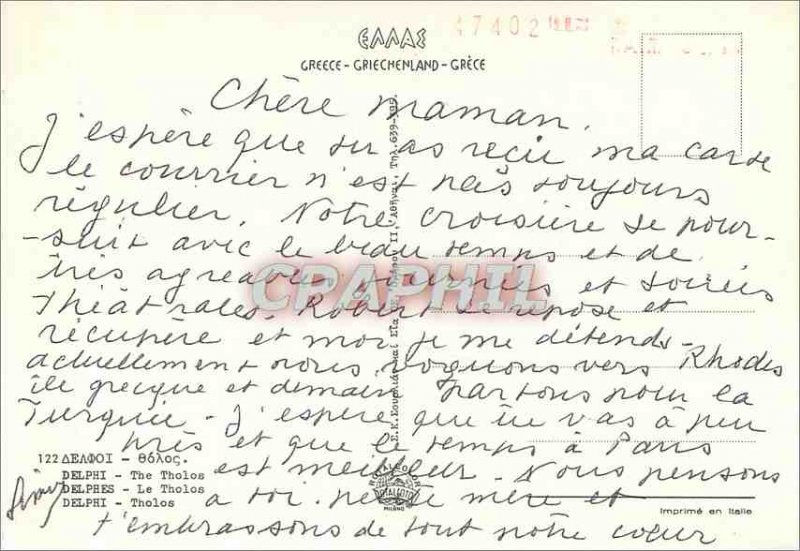 ΕΛΛΑΣ
47402
GREECE - GRIECHENLAND - GRÈCE
Chère maman,
J'espère que tu as reçu ma carte
le courrier n'est pas toujours
régulier. Notre croisière se pour-
-suit avec le beau temps et de
très agreables journées et soirées
Théâtrales. Robert se repose et
récupère et moi je me détends -
actuellement nous voguons vers Rhodes
île grecque et demain partons pour la
Turquie - J'espère que tu vas à peu
près et que le temps à Paris
est meilleur - Nous pensons
a toi petite mère et
t'embrassons de tout notre coeur
122 ΔΕΛΦΟΙ - Θόλος.
DELPHI - The Tholos
DELPHES - Le Tholos
DELPHI - Tholos
ROTALCOLOR
ROTALFOTO
MILANO
Imprimé en Italie
CPAPHIL